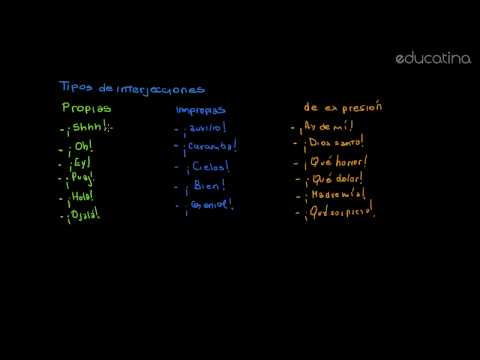 educatina
Tipos de interjecciones
Propias
- ¡Shhh!
- ¡Oh!
- ¡Ey!
- ¡Puaj!
- ¡Hola!
- ¡Ojalá!
impropias
- ¡auxilio!
- ¡Caramba!
- ¡Cielos!
- ¡Bien!
- ¡Genial!
de expresión
- ¡Ay de mí!
- ¡Dios santo!
- ¡Qué horror!
- ¡Qué dolor!
- ¡Madre mía!
- ¡Qué sorpresa!